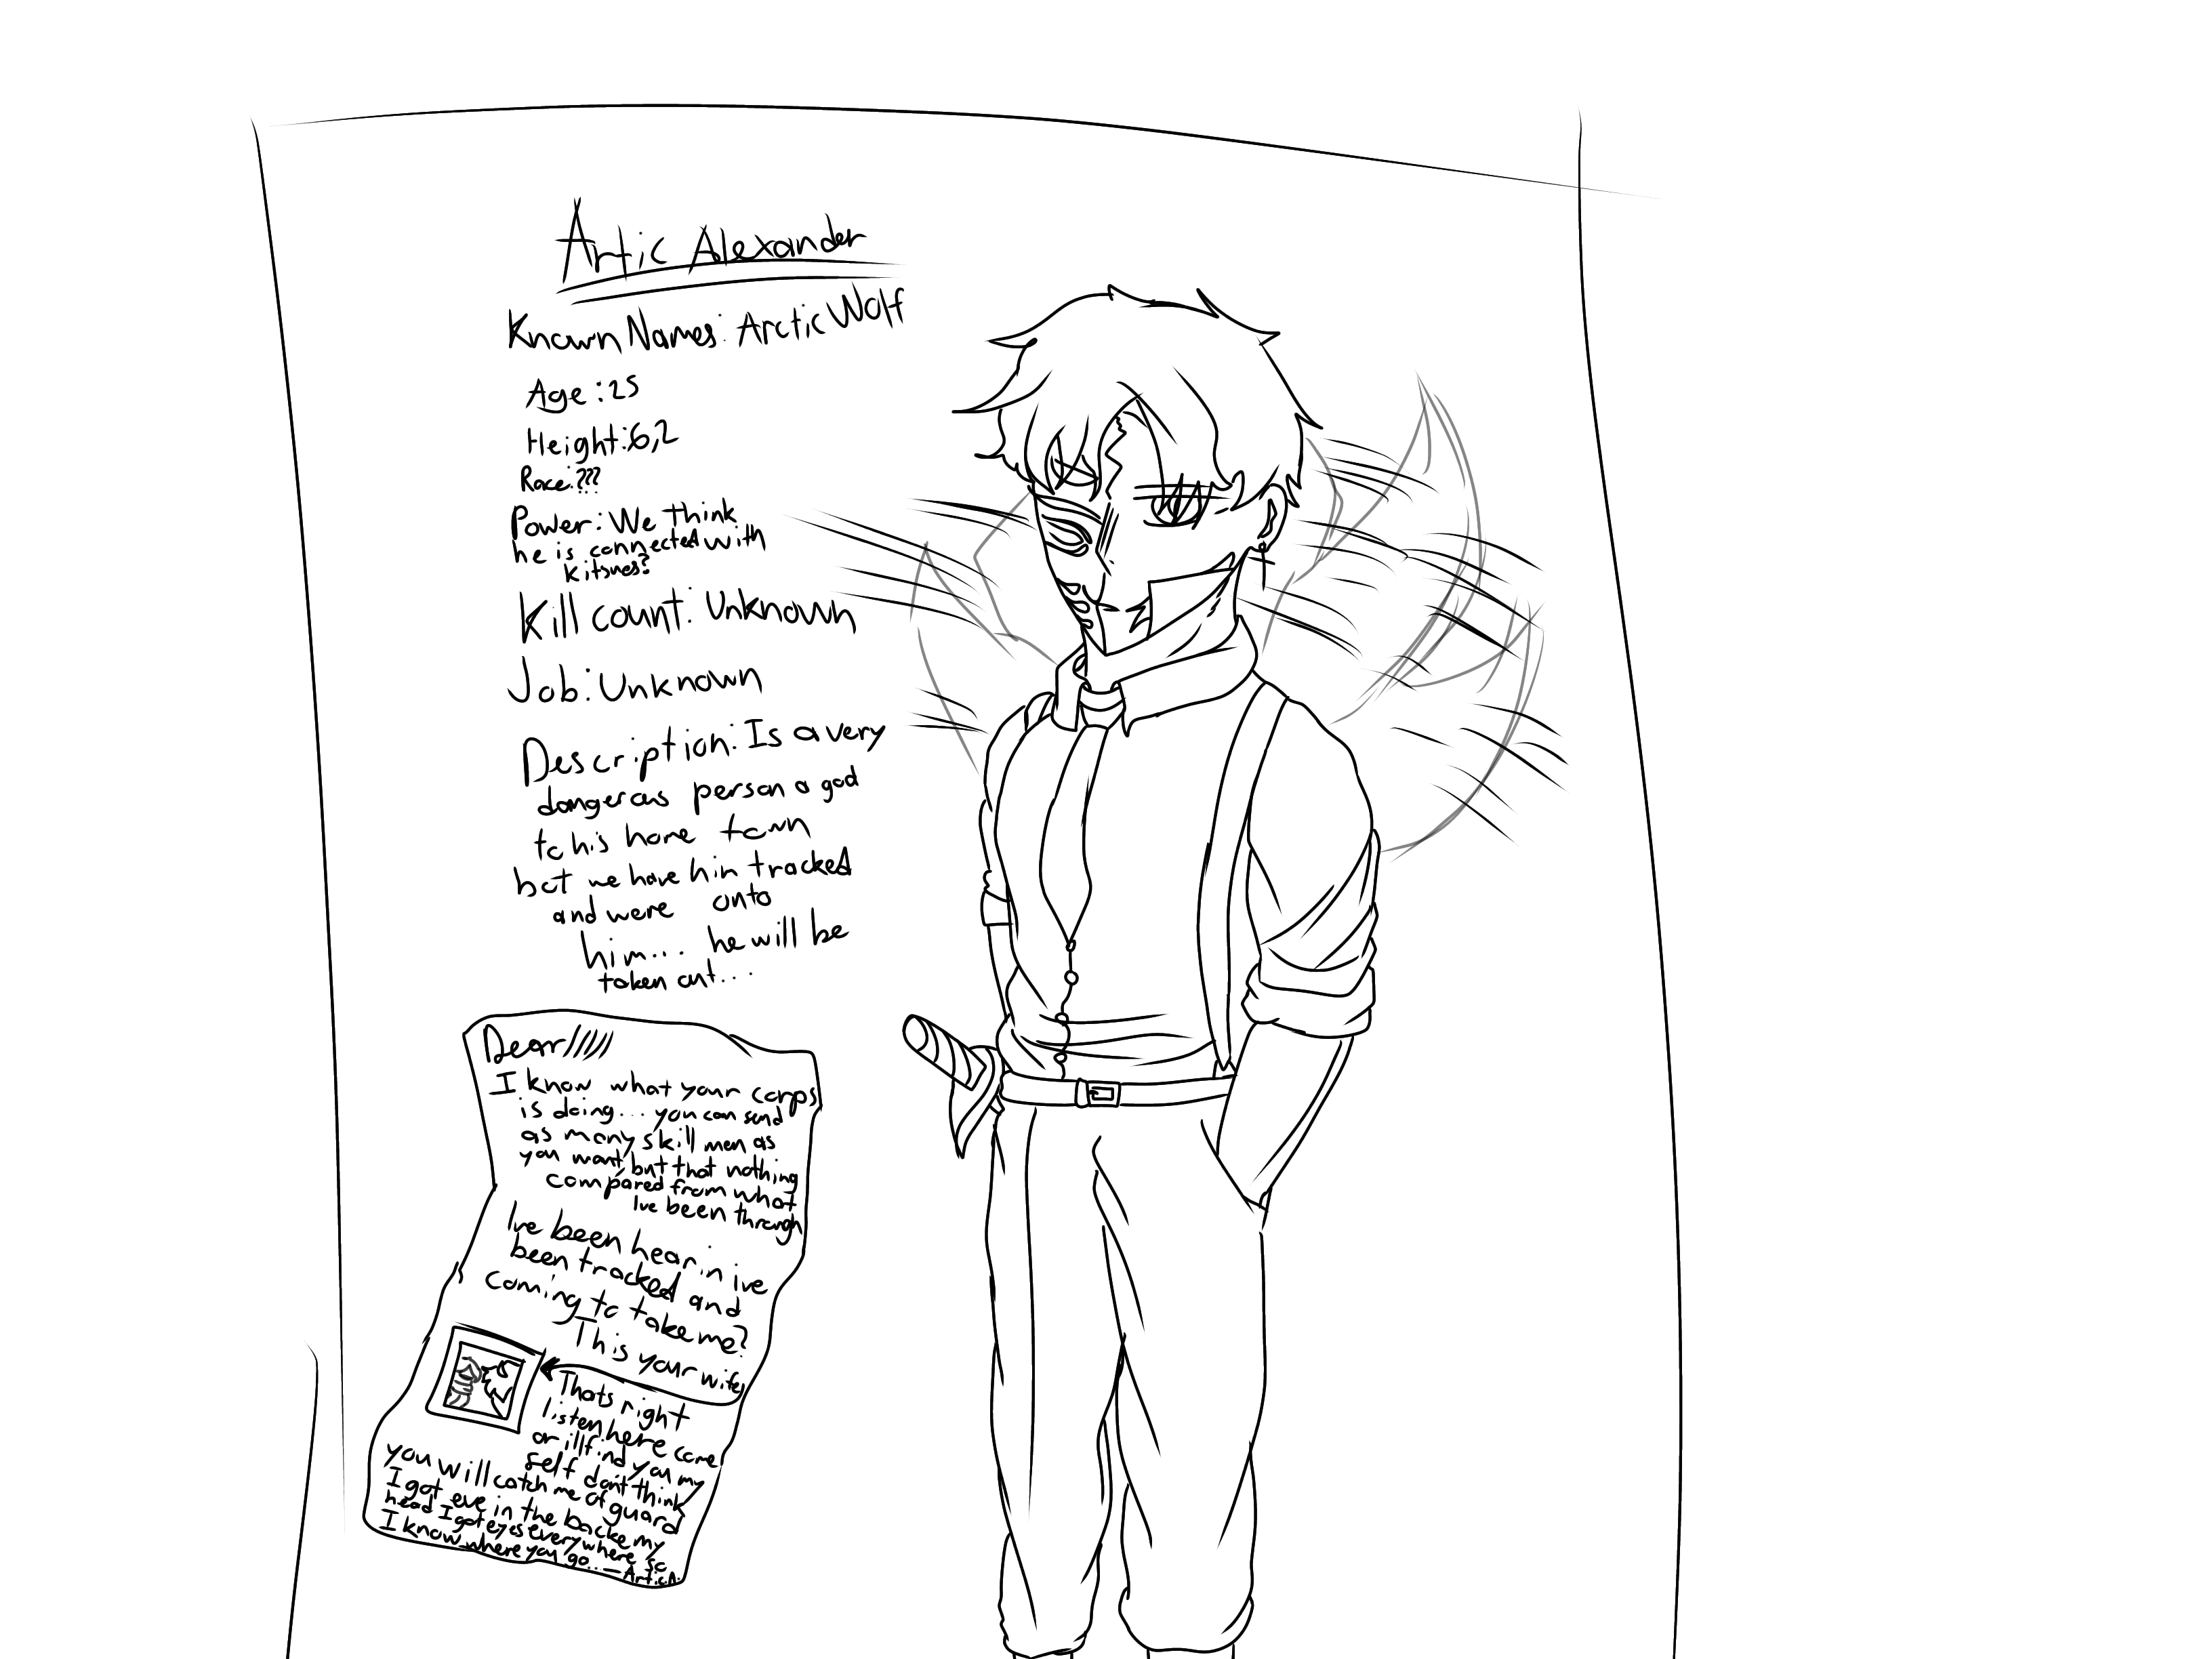 Artic Alexander
Known Names: Arctic Wolf
Age: 25
Height: 6,2
Race: ???
Power: We think
he is connected with
kitsnes?
Kill count: Unknown
Job: Unknown
Description: Is a very
dangerous person a god
to his home town
but we have him tracked
and were onto
him... he will be
taken out...
Dear
I know what your corps
is doing... you can send
as many skill men as
you want, but that nothing
compared from what
Ive been through
Ive been hear in ive
been tracked and
coming to take me?
This your wife,
Thats right
listen here come
or ill find you my
self dont think
you will catch me of guard
I got eye in the backe my
head I got eyes everywhere so
I know where you go... — Artic.A.